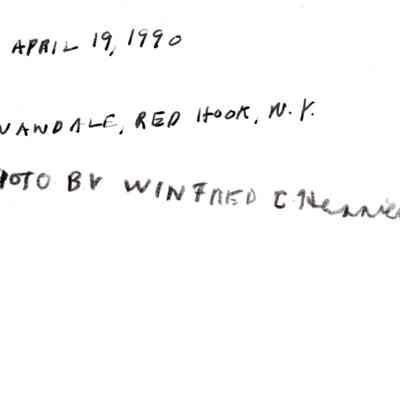 APRIL 19, 1990
NANDALE, RED HOOK, N.Y.
HOTO BY WINFRED C